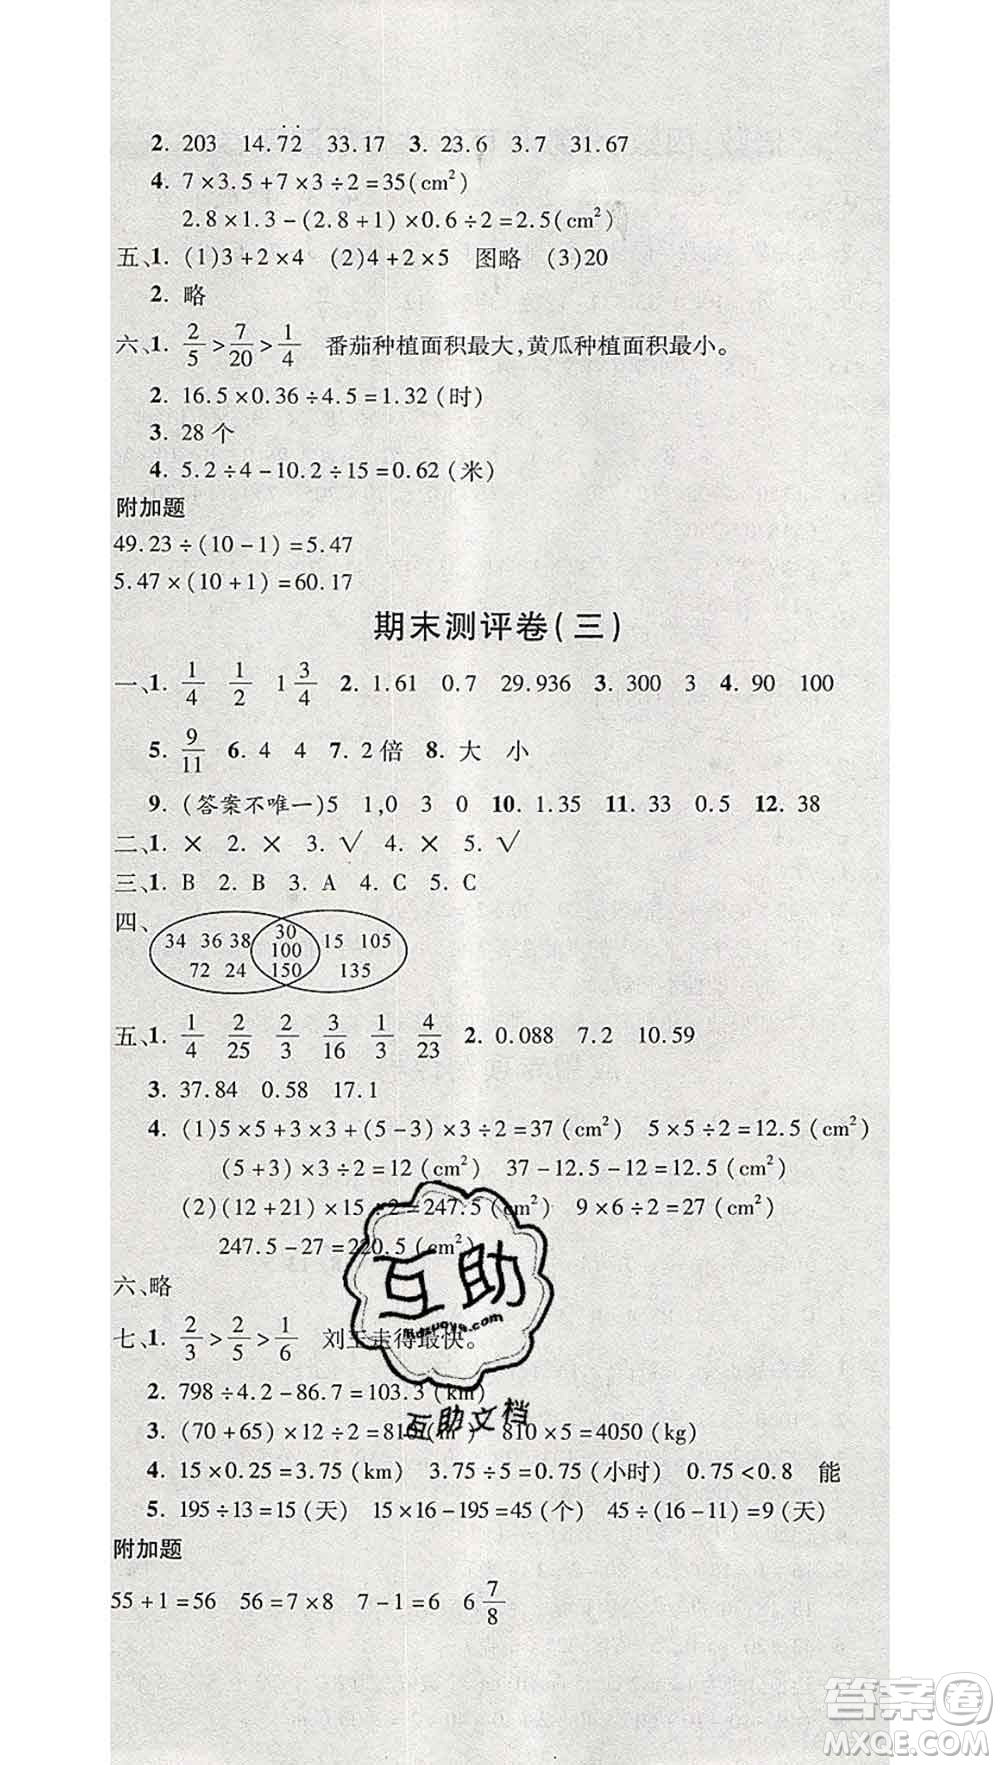 2. 203 14.7̇2̇ 33.17 3. 23.6 3.7 31.67
4. 7×3.5+7×3÷2=35(cm²)
2.8×1.3-(2.8+1)×0.6÷2=2.5(cm²)
五、1. (1)3+2×4 (2)4+2×5 图略 (3)20
2. 略
六、1. 2/5>7/20>1/4 番茄种植面积最大,黄瓜种植面积最小。
2. 16.5×0.36÷4.5=1.32(时)
3. 28个
4. 5.2÷4-10.2÷15=0.62(米)
附加题
49.23÷(10-1)=5.47
5.47×(10+1)=60.17
期末测评卷(三)
一、1. 1/4 1/2 1 3/4 2. 1.61 0.7 29.936 3. 300 3 4. 90 100
5. 9/11 6. 4 4 7. 2倍 8. 大 小
9. (答案不唯一)5 1,0 3 0 10. 1.35 11. 33 0.5 12. 38
二、1. × 2. × 3. √ 4. × 5. √
三、1. B 2. B 3. A 4. C 5. C
四、
34 36 38 30 15 105
100
72 24 150 135
五、1. 1/4 2/25 2/3 3/16 1/3 4/23 2. 0.088 7.2 10.59
3. 37.84 0.58 17.1
4. (1)5×5+3×3+(5-3)×3÷2=37(cm²) 5×5÷2=12.5(cm²)
(5+3)×3÷2=12(cm²) 37-12.5-12=12.5(cm²)
(2)(12+21)×15÷2=247.5(cm²) 9×6÷2=27(cm²)
247.5-27=220.5(cm²)
六、略
七、1. 2/3>2/5>1/6 刘王走得最快。
2. 798÷4.2-86.7=103.3(km)
3. (70+65)×12÷2=810(m²) 810×5=4050(kg)
4. 15×0.25=3.75(km) 3.75÷5=0.75(小时) 0.75<0.8 能
5. 195÷13=15(天) 15×16-195=45(个) 45÷(16-11)=9(天)
附加题
55+1=56 56=7×8 7-1=6 6 7/8
互助
Hdzuoye.com
互助文档
答案卷
MXQE.COM